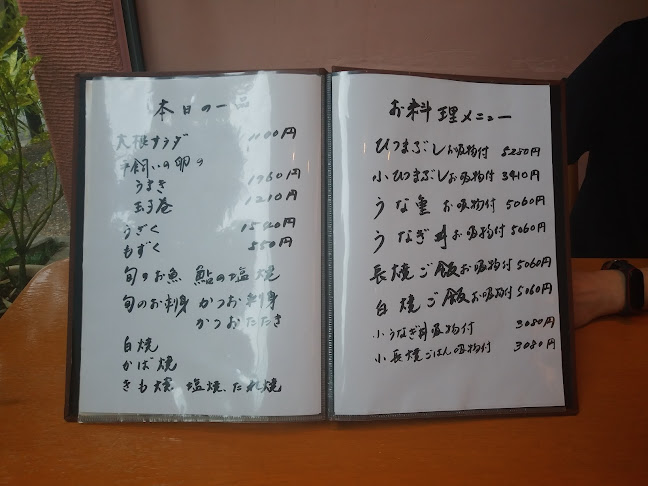 本日の一品
大根サラダ 1100円
平飼いの卵の
うまき 1980円
玉子巻 1210円
うざく 1540円
もずく 550円
旬のお魚 鮎の塩焼
旬のお刺身 かつお刺身
かつおたたき
白焼
かば焼
きも焼 塩焼、たれ焼
お料理メニュー
ひつまぶしお吸物付 5280円
小ひつまぶしお吸物付 3410円
うな重 お吸物付 5060円
うなぎ丼お吸物付 5060円
長焼ご飯お吸物付 5060円
白焼ご飯お吸物付 5060円
小うなぎ丼吸物付 3080円
小長焼ごはん吸物付 3080円